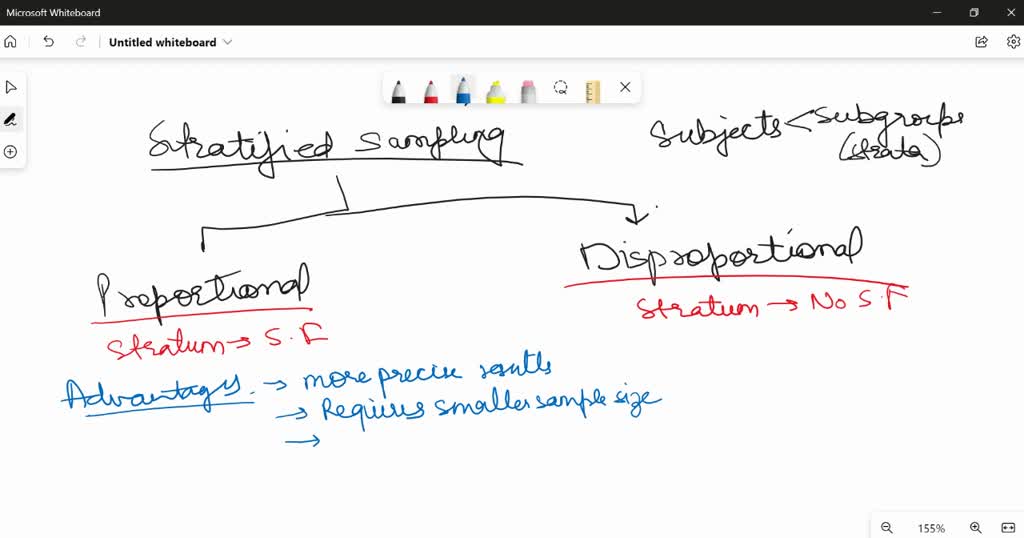 Microsoft Whiteboard
Untitled whiteboard
Stratified Sampling
Subjects < Subgroups
(strata)
Proportional
Disproportional
Stratum → S.F
Stratum → No S.F
Advantages → more precise results
→ Requires smaller sample size
→
155%